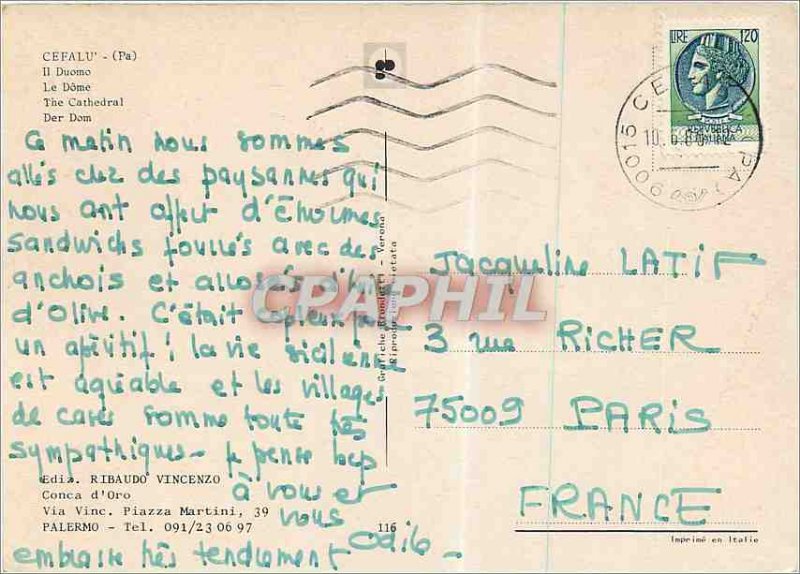 CEFALU' - (Pa)
Il Duomo
Le Dôme
The Cathedral
Der Dom
Ce matin nous sommes
allés chez des paysannes qui
nous ont offert d'énormes
sandwichs fourrés avec des
anchois et arrosés d'huile
d'Olive. C'était
un apéritif! la vie sicilienne
est agréable et les villages
de cartes somme toute très
sympathiques - je pense bcp
à vous et
vous
embrasse très tendrement Odile -
Ediz. RIBAUDO VINCENZO
Conca d'Oro
Via Vinc. Piazza Martini, 39
PALERMO - Tel. 091/23 06 97
116
Grafiche Brondetti - Verona
Riproduzione vietata
LIRE 120
REPVBBLICA
ITALIANA
90015 CE
PA
10.6.80
Jacqueline LATIF
3 rue RICHER
75009 PARIS
FRANCE
Imprimé en Italie
CPAPHIL